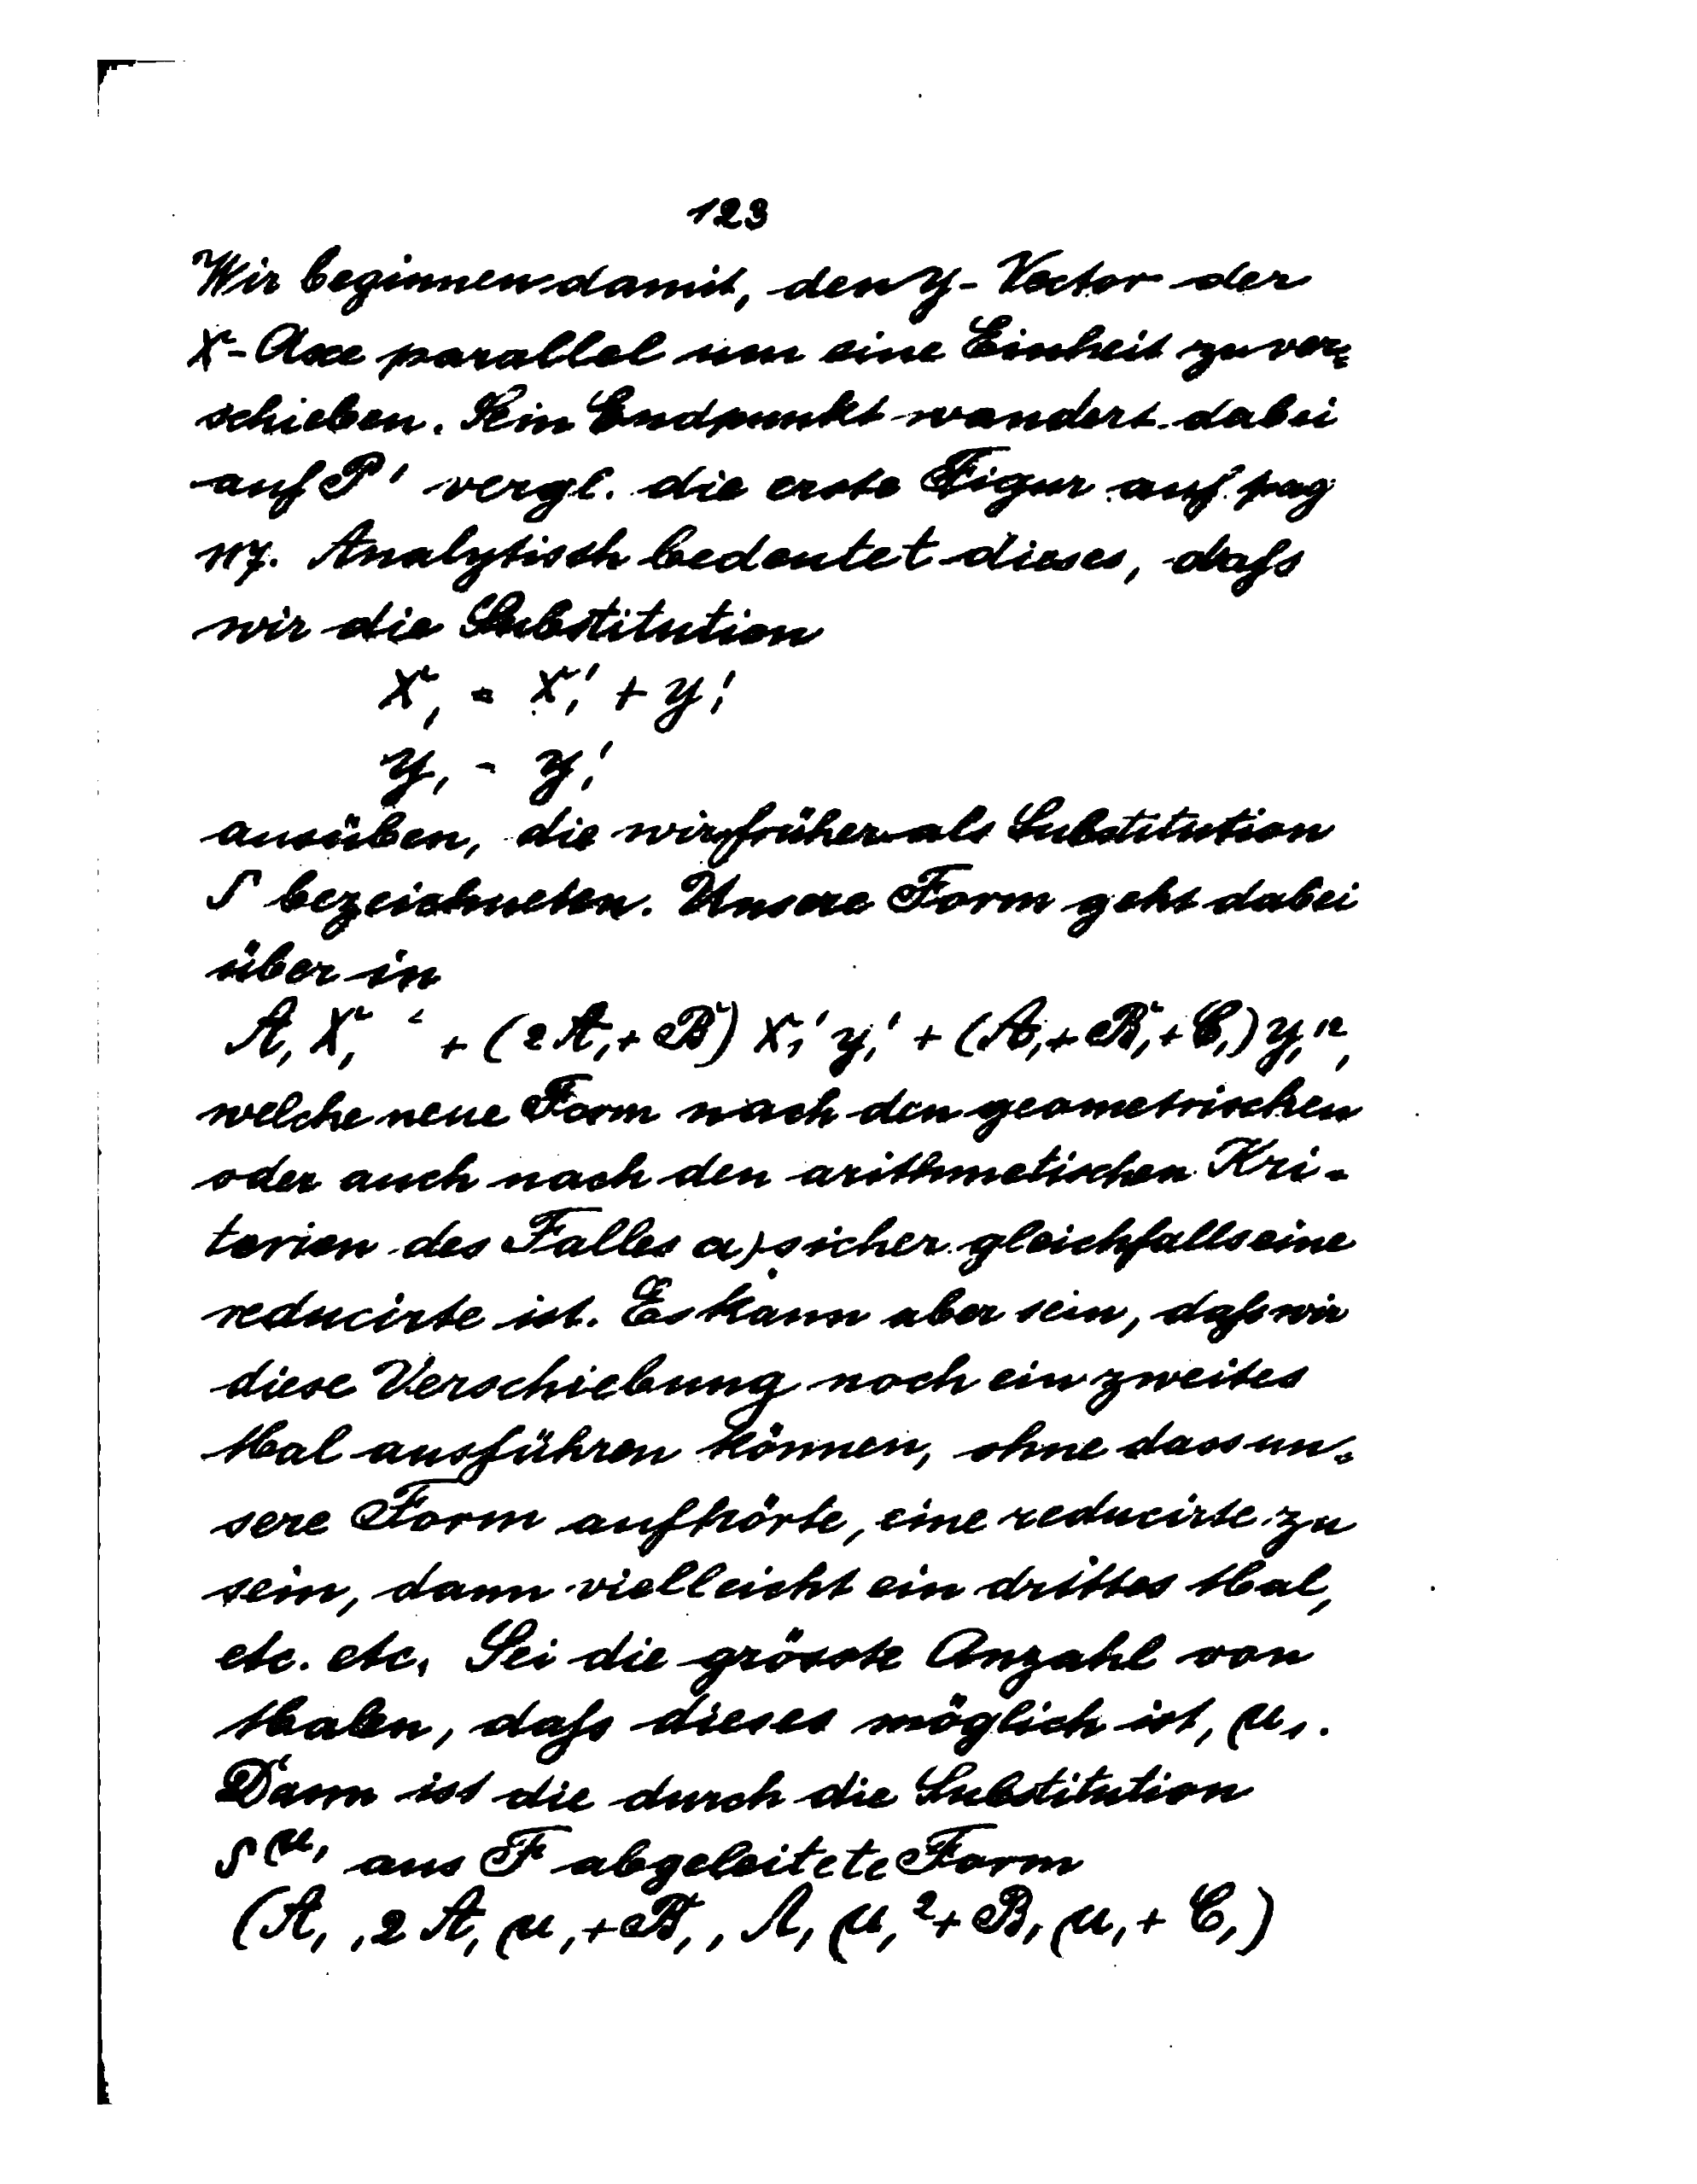 123
Wir beginnen damit, den y-Vector der
X-Axe parallel um eine Einheit zu ver-
schieben. Sein Endpunkt wandert dabei
auf P' vergl. die erste Figur auf pag
117. Analytisch bedeutet dieses, daſs
wir die Substitution
X₁ = X₁' + y₁'
y₁ = y₁'
ausüben, die wir früher als Substitution
S bezeichneten. Unsere Form geht dabei
über in
A₁X₁'² + (2A₁ + B₁) X₁'y₁' + (A₁ + B₁ + C₁) y₁'²,
welche neue Form nach den geometrischen
oder auch nach den arithmetischen Kri-
terien des Falles α) sicher gleichfalls eine
reducirte ist. Es kann aber sein, daſs wir
diese Verschiebung noch ein zweites
Mal ausführen können, ohne dass un-
sere Form aufhörte, eine reducirte zu
sein, dann vielleicht ein drittes Mal,
etc. etc. Sei die grösste Anzahl von
Malen, daſs dieses möglich ist, μ₁.
Dann ist die durch die Substitution
S^μ₁ aus F abgeleitete Form
(A₁, 2A₁μ₁ + B₁, A₁μ₁² + B₁μ₁ + C₁)